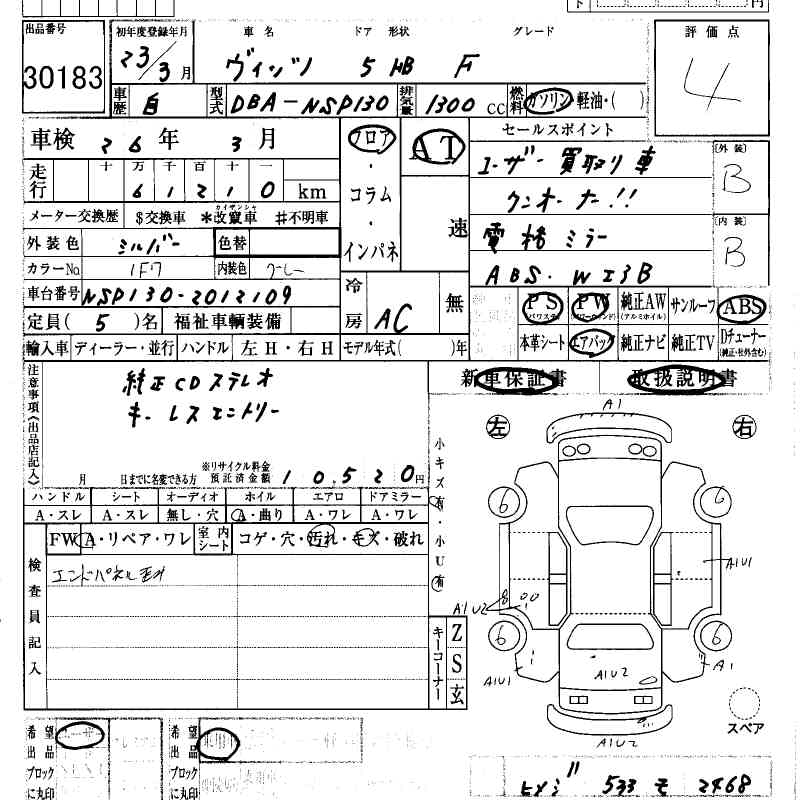 出品番号
30183
初年度登録年月
23/3月
車名 ドア 形状 グレード
ヴィッツ 5 HB F
車歴 自 型式 DBA-NSP130 排気量 1300 CC 燃料 ガソリン・軽油・( )
評価点
4
車検 26年 3月
走行 十 万 千 百 十 一
6 1 2 1 0 km
メーター交換歴 $交換車 *改竄車 #不明車
カイザンシャ
外装色 シルバー 色替
カラーNo. 1F7 内装色 グレー
車台番号 NSP130-2012109
定員( 5 )名 福祉車輌装備
輸入車 ディーラー・並行 ハンドル 左H・右H モデル年式( )年
フロア・コラム・インパネ
AT
速
冷房 AC 無
セールスポイント
ユーザー買取り車
ワンオーナー!!
電格ミラー
ABS.WエアB
外装
B
内装
B
PS PW 純正AW サンルーフ ABS
(パワステ) (パワーウィンド) (アルミホイル)
本革シート エアバッグ 純正ナビ 純正TV Dチューナー
(純正・社外含む)
新車保証書 取扱説明書
注意事項(出品店記入)
純正CDステレオ
キーレスエントリー
月 日までに名変できる方
※リサイクル料金
預託済金額 10.520円
ハンドル シート オーディオ ホイル エアロ ドアミラー
A・スレ A・スレ 無し・穴 A・曲り A・ワレ A・ワレ
FW A・リペア・ワレ 室内シート コゲ・穴・汚れ・キズ・破れ
検査員記入
エンドパネル
小キズ有・小U有
キーコーナー
Z
S
玄
左 右
A1
6 6
A1U1
A1U2
6 6
A1U1
A1U2
A1
A1U2
スペア
希望出品ブロックに丸印
ユーザー
希望出品ブロックに丸印
ヒメジ 533 そ 2468